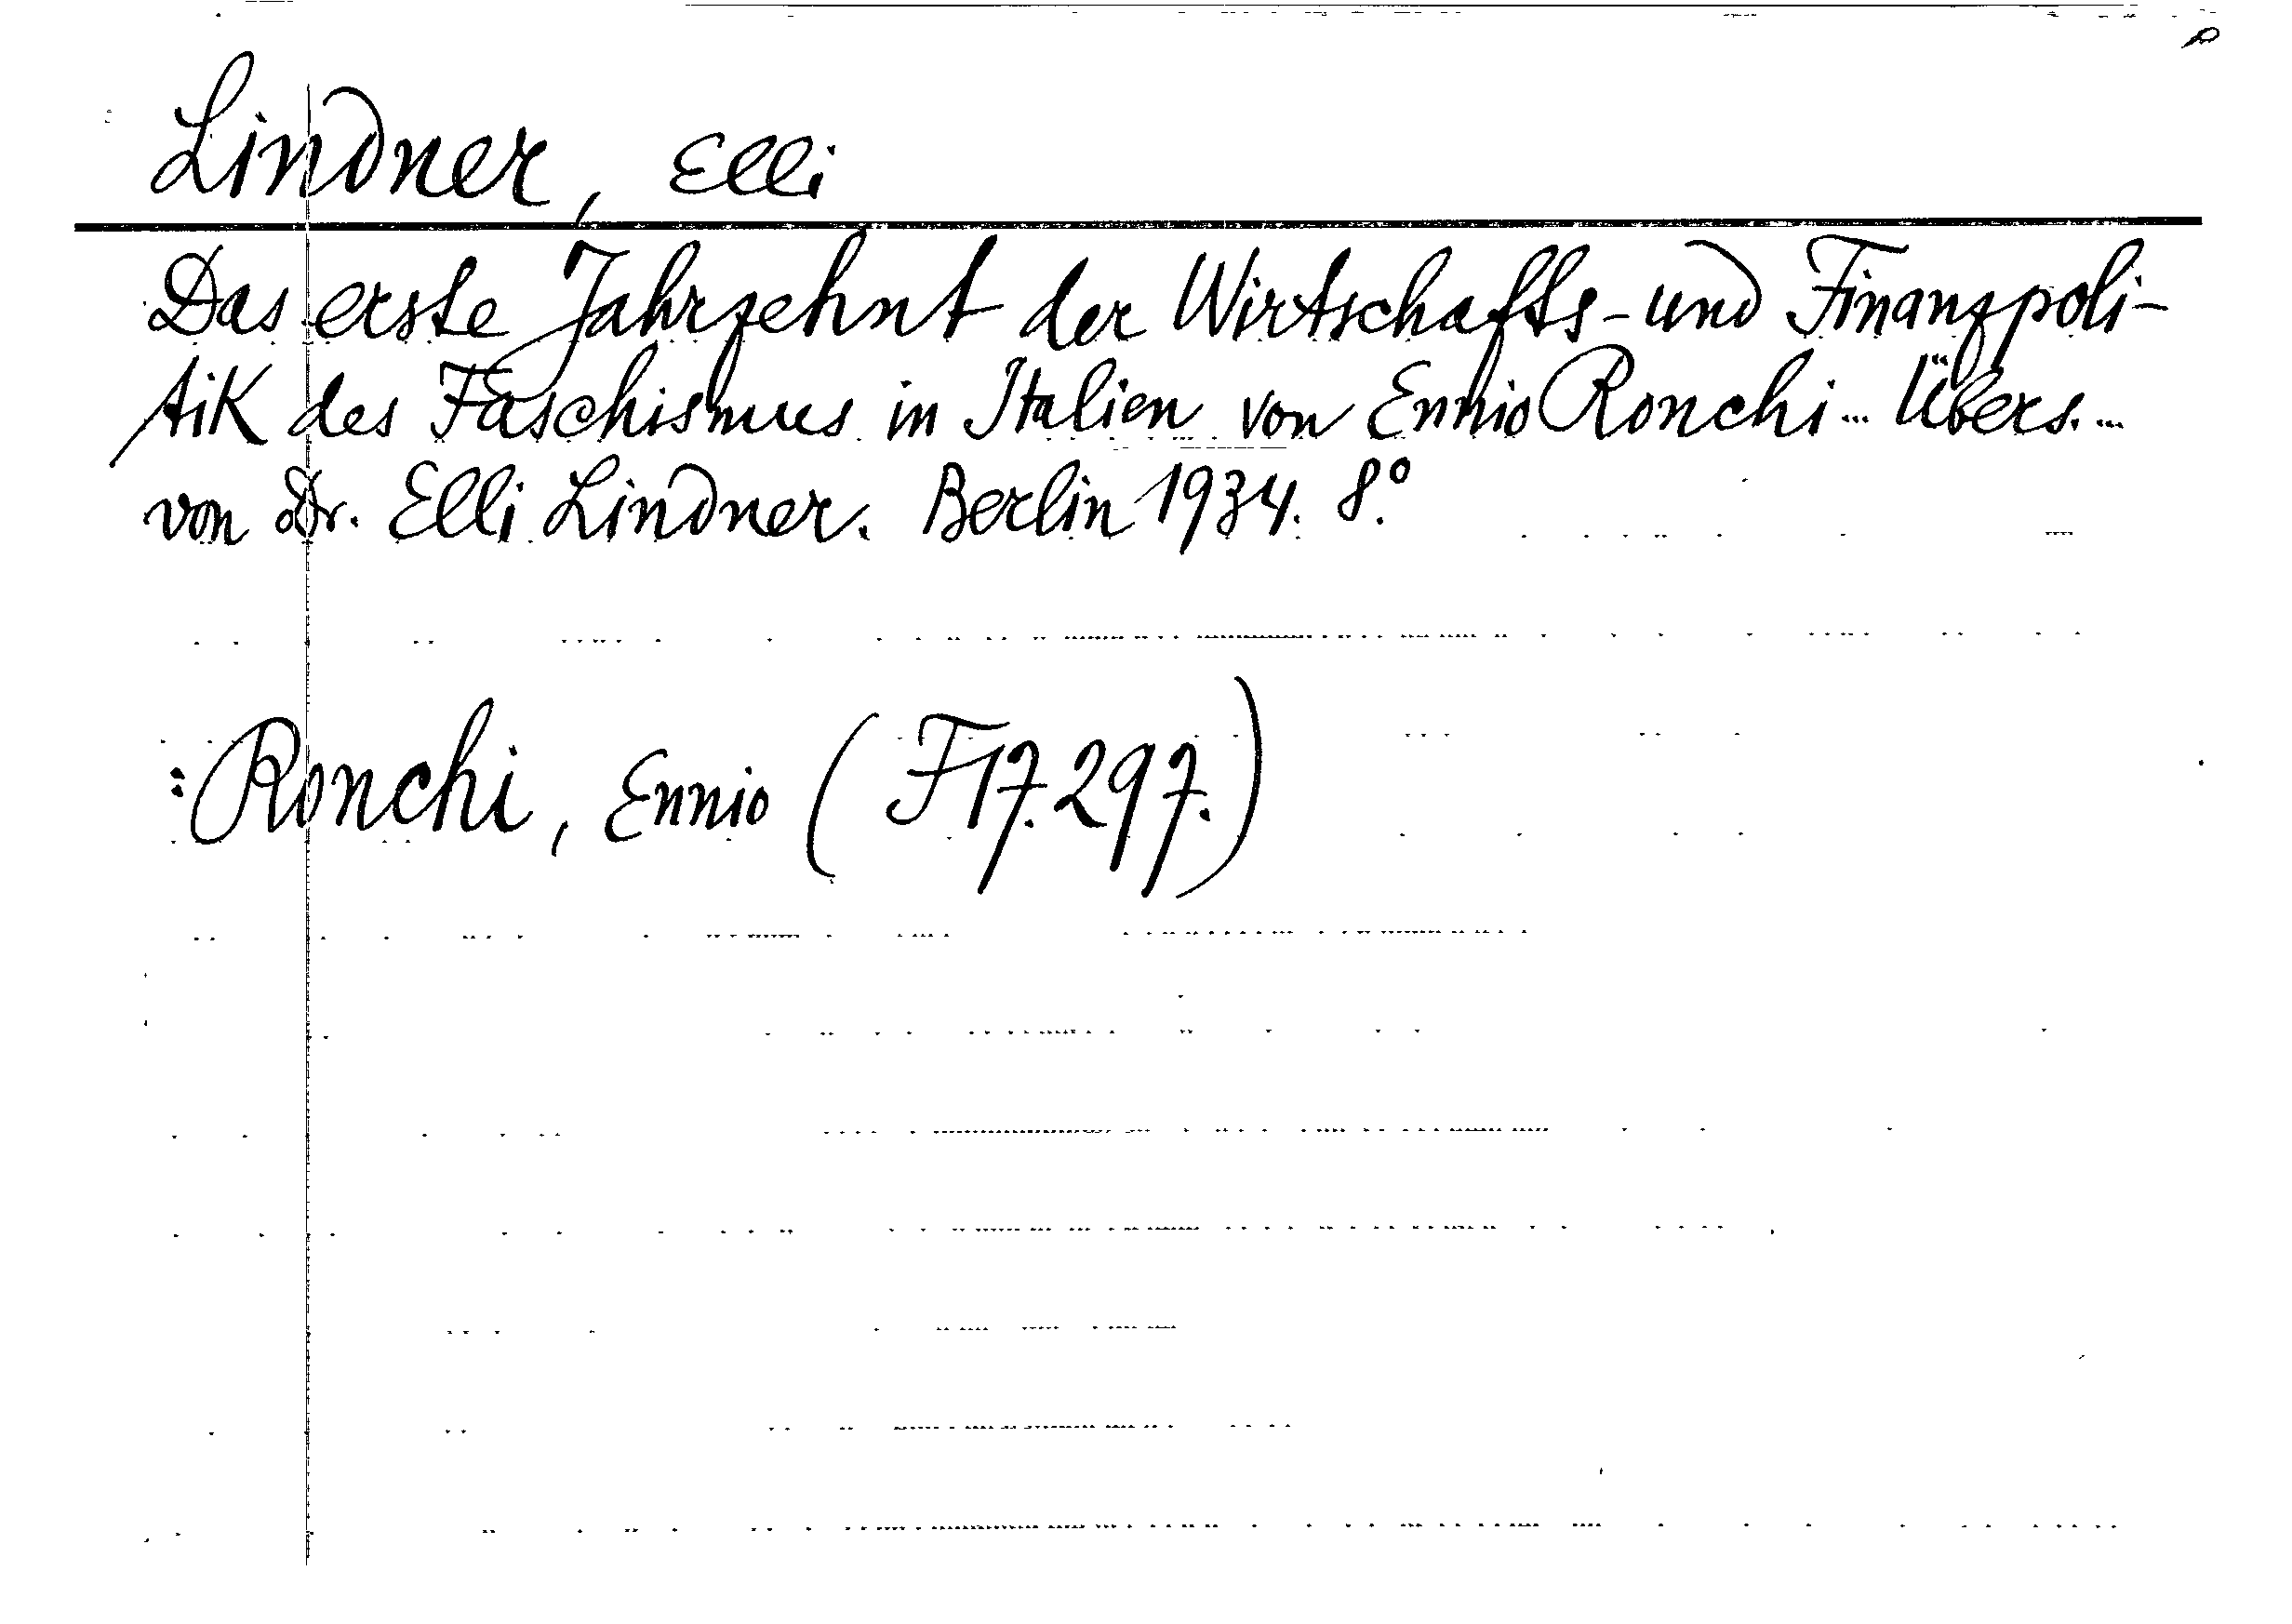 Lindner, Elli
Das erste Jahrzehnt der Wirtschafts- und Finanzpoli-
tik des Faschismus in Italien von Ennio Ronchi... Übers. ...
von Dr. Elli Lindner. Berlin 1934. 8°.
: Ronchi, Ennio (F17.297.)